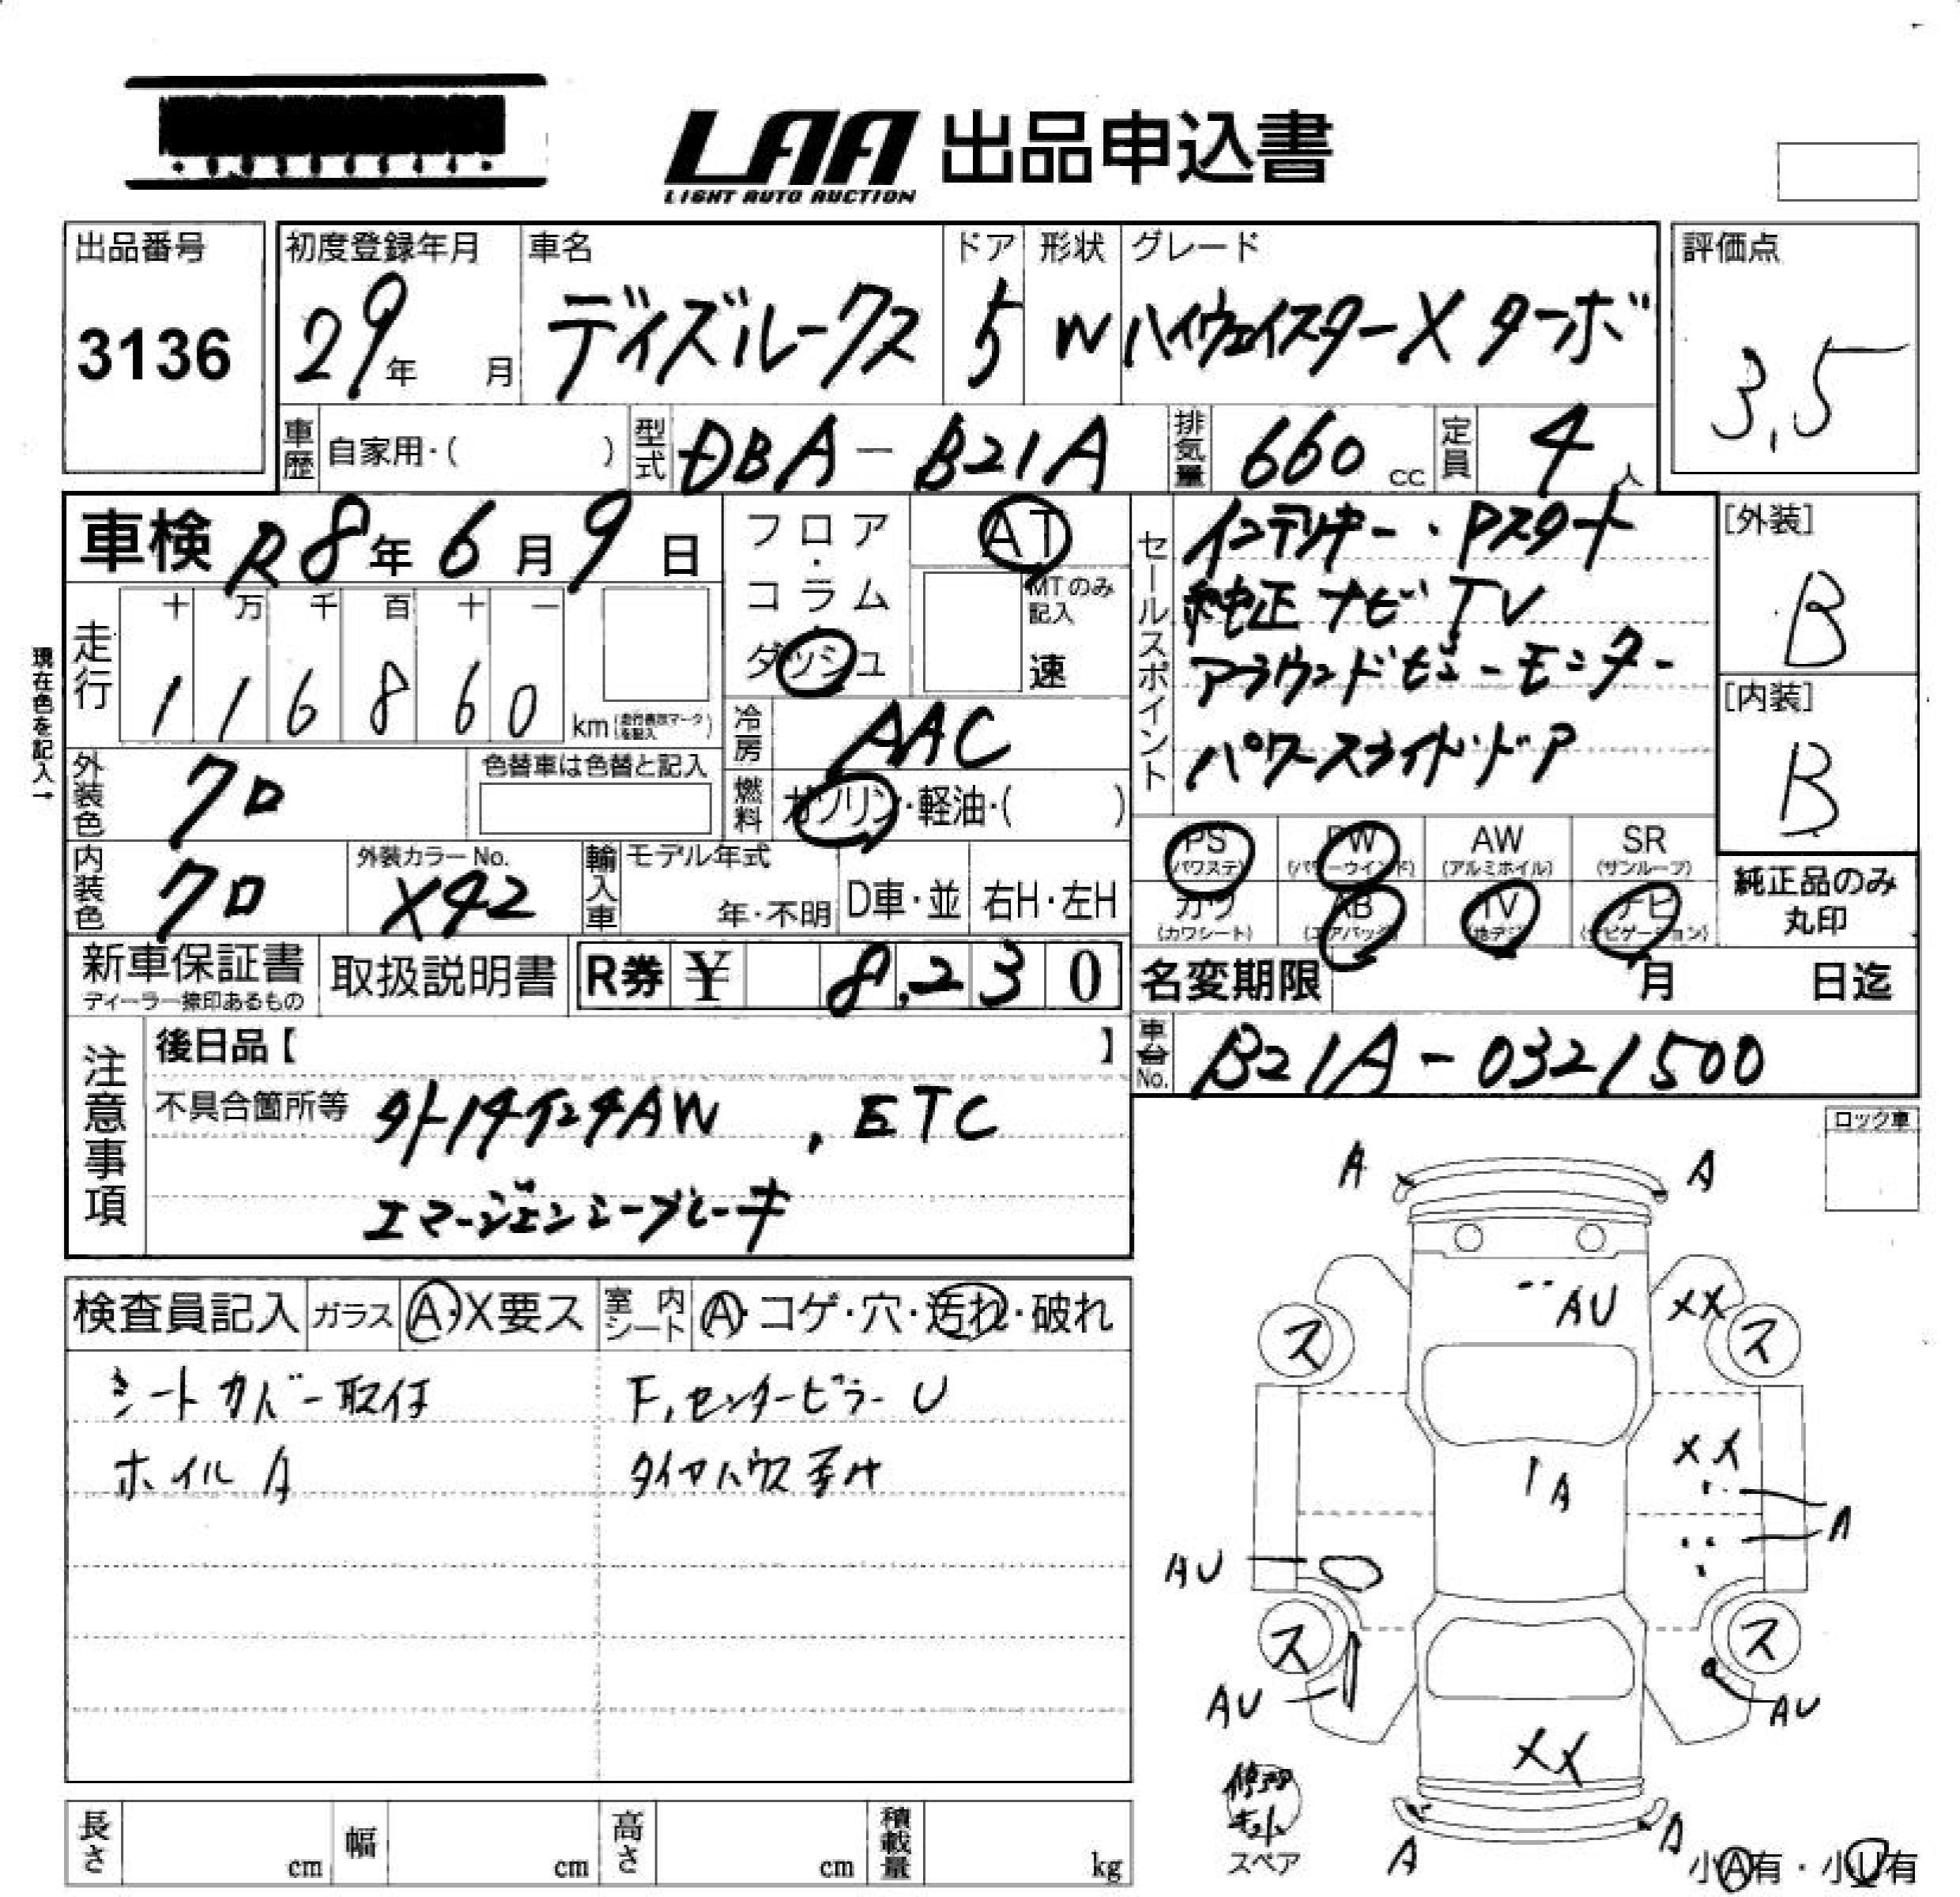 LAA 出品申込書
LIGHT AUTO AUCTION
出品番号
3136
初度登録年月
29年 月
車名
デイズルークス
ドア
5
形状
W
グレード
ハイウェイスターX ターボ
評価点
3.5
車歴 自家用・( )
型式 DBA-B21A
排気量 660 cc
定員 4 人
車検 R8年6月9日
フロア・コラム・ダッシュ
AT
MTのみ記入
速
セールスポイント
インテリキー・Pスタート
純正ナビTV
アラウンドビューモニター
パワースライドドア
[外装]
B
[内装]
B
現在色を記入→
走行
十 万 千 百 十 一
1 1 6 8 6 0 km
冷房 AAC
外装色 クロ
色替車は色替と記入
燃料 ガソリン・軽油・( )
内装色 クロ
外装カラーNo.
X42
輸入車 モデル年式
年・不明
D車・並
右H・左H
PS (パワステ)
PW (パワーウインド)
AW (アルミホイル)
SR (サンルーフ)
カワ (カワシート)
AB (エアバック)
TV (地デジ)
ナビ (ナビゲーション)
純正品のみ丸印
新車保証書
ディーラー捺印あるもの
取扱説明書
R券 ¥ 8,230
名変期限 月 日迄
車台No. B21A-0321500
注意事項
後日品【 】
不具合箇所等 外14インチAW , ETC
エマージェンシーブレーキ
ロック車
検査員記入
ガラス A・X要ス
室内シート A・コゲ・穴・汚れ・破れ
シートカバー取付
F,センターピラーU
ホイルA
タイヤハウス
A A
AU XX
ス ス
XX
A
A
AU
ス ス
AU AU
XX
A A
修理キット
スペア
小A有・小U有
長さ cm
幅 cm
高さ cm
積載量 kg